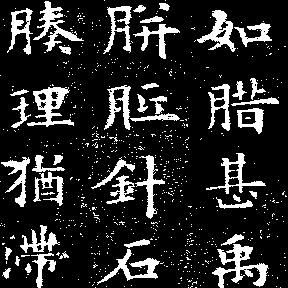 如腊甚禹
胼胝針石
腠理猶滯